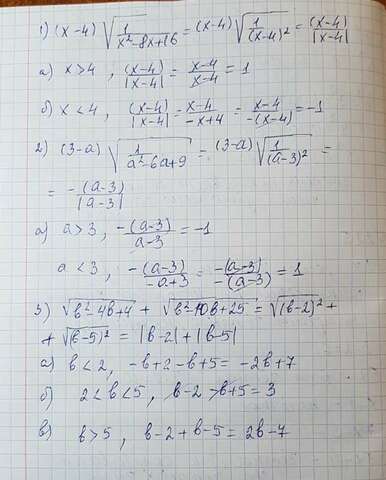 1) (x-4) √(1/(x²-8x+16)) = (x-4) √(1/(x-4)²) = (x-4)/|x-4|
а) x>4, (x-4)/|x-4| = (x-4)/(x-4) = 1
б) x<4, (x-4)/|x-4| = (x-4)/(-x+4) = (x-4)/(-(x-4)) = -1
2) (3-a) √(1/(a²-6a+9)) = (3-a) √(1/(a-3)²) =
= -(a-3)/|a-3|
а) a>3, -(a-3)/(a-3) = -1
a<3, -(a-3)/(-a+3) = -(a-3)/(-(a-3)) = 1
3) √(b²-4b+4) + √(b²-10b+25) = √(b-2)² +
+ √(b-5)² = |b-2| + |b-5|
а) b<2, -b+2-b+5 = -2b+7
б) 2<b<5, b-2-b+5 = 3
в) b>5, b-2+b-5 = 2b-7